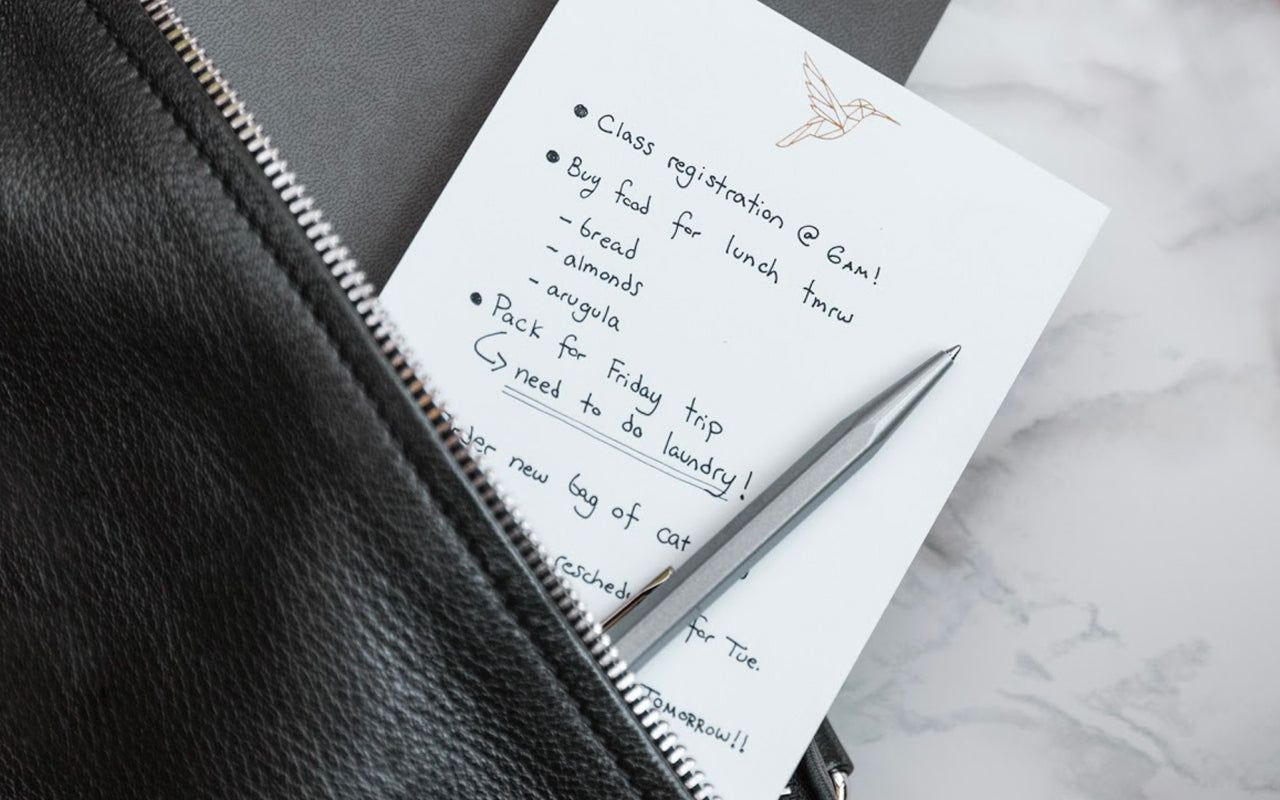 • Class registration @ 6AM!
• Buy food for lunch tmrw
- bread
- almonds
- arugula
• Pack for Friday trip
↳ need to do laundry!
new bag of cat
for Tue.
TOMORROW!!